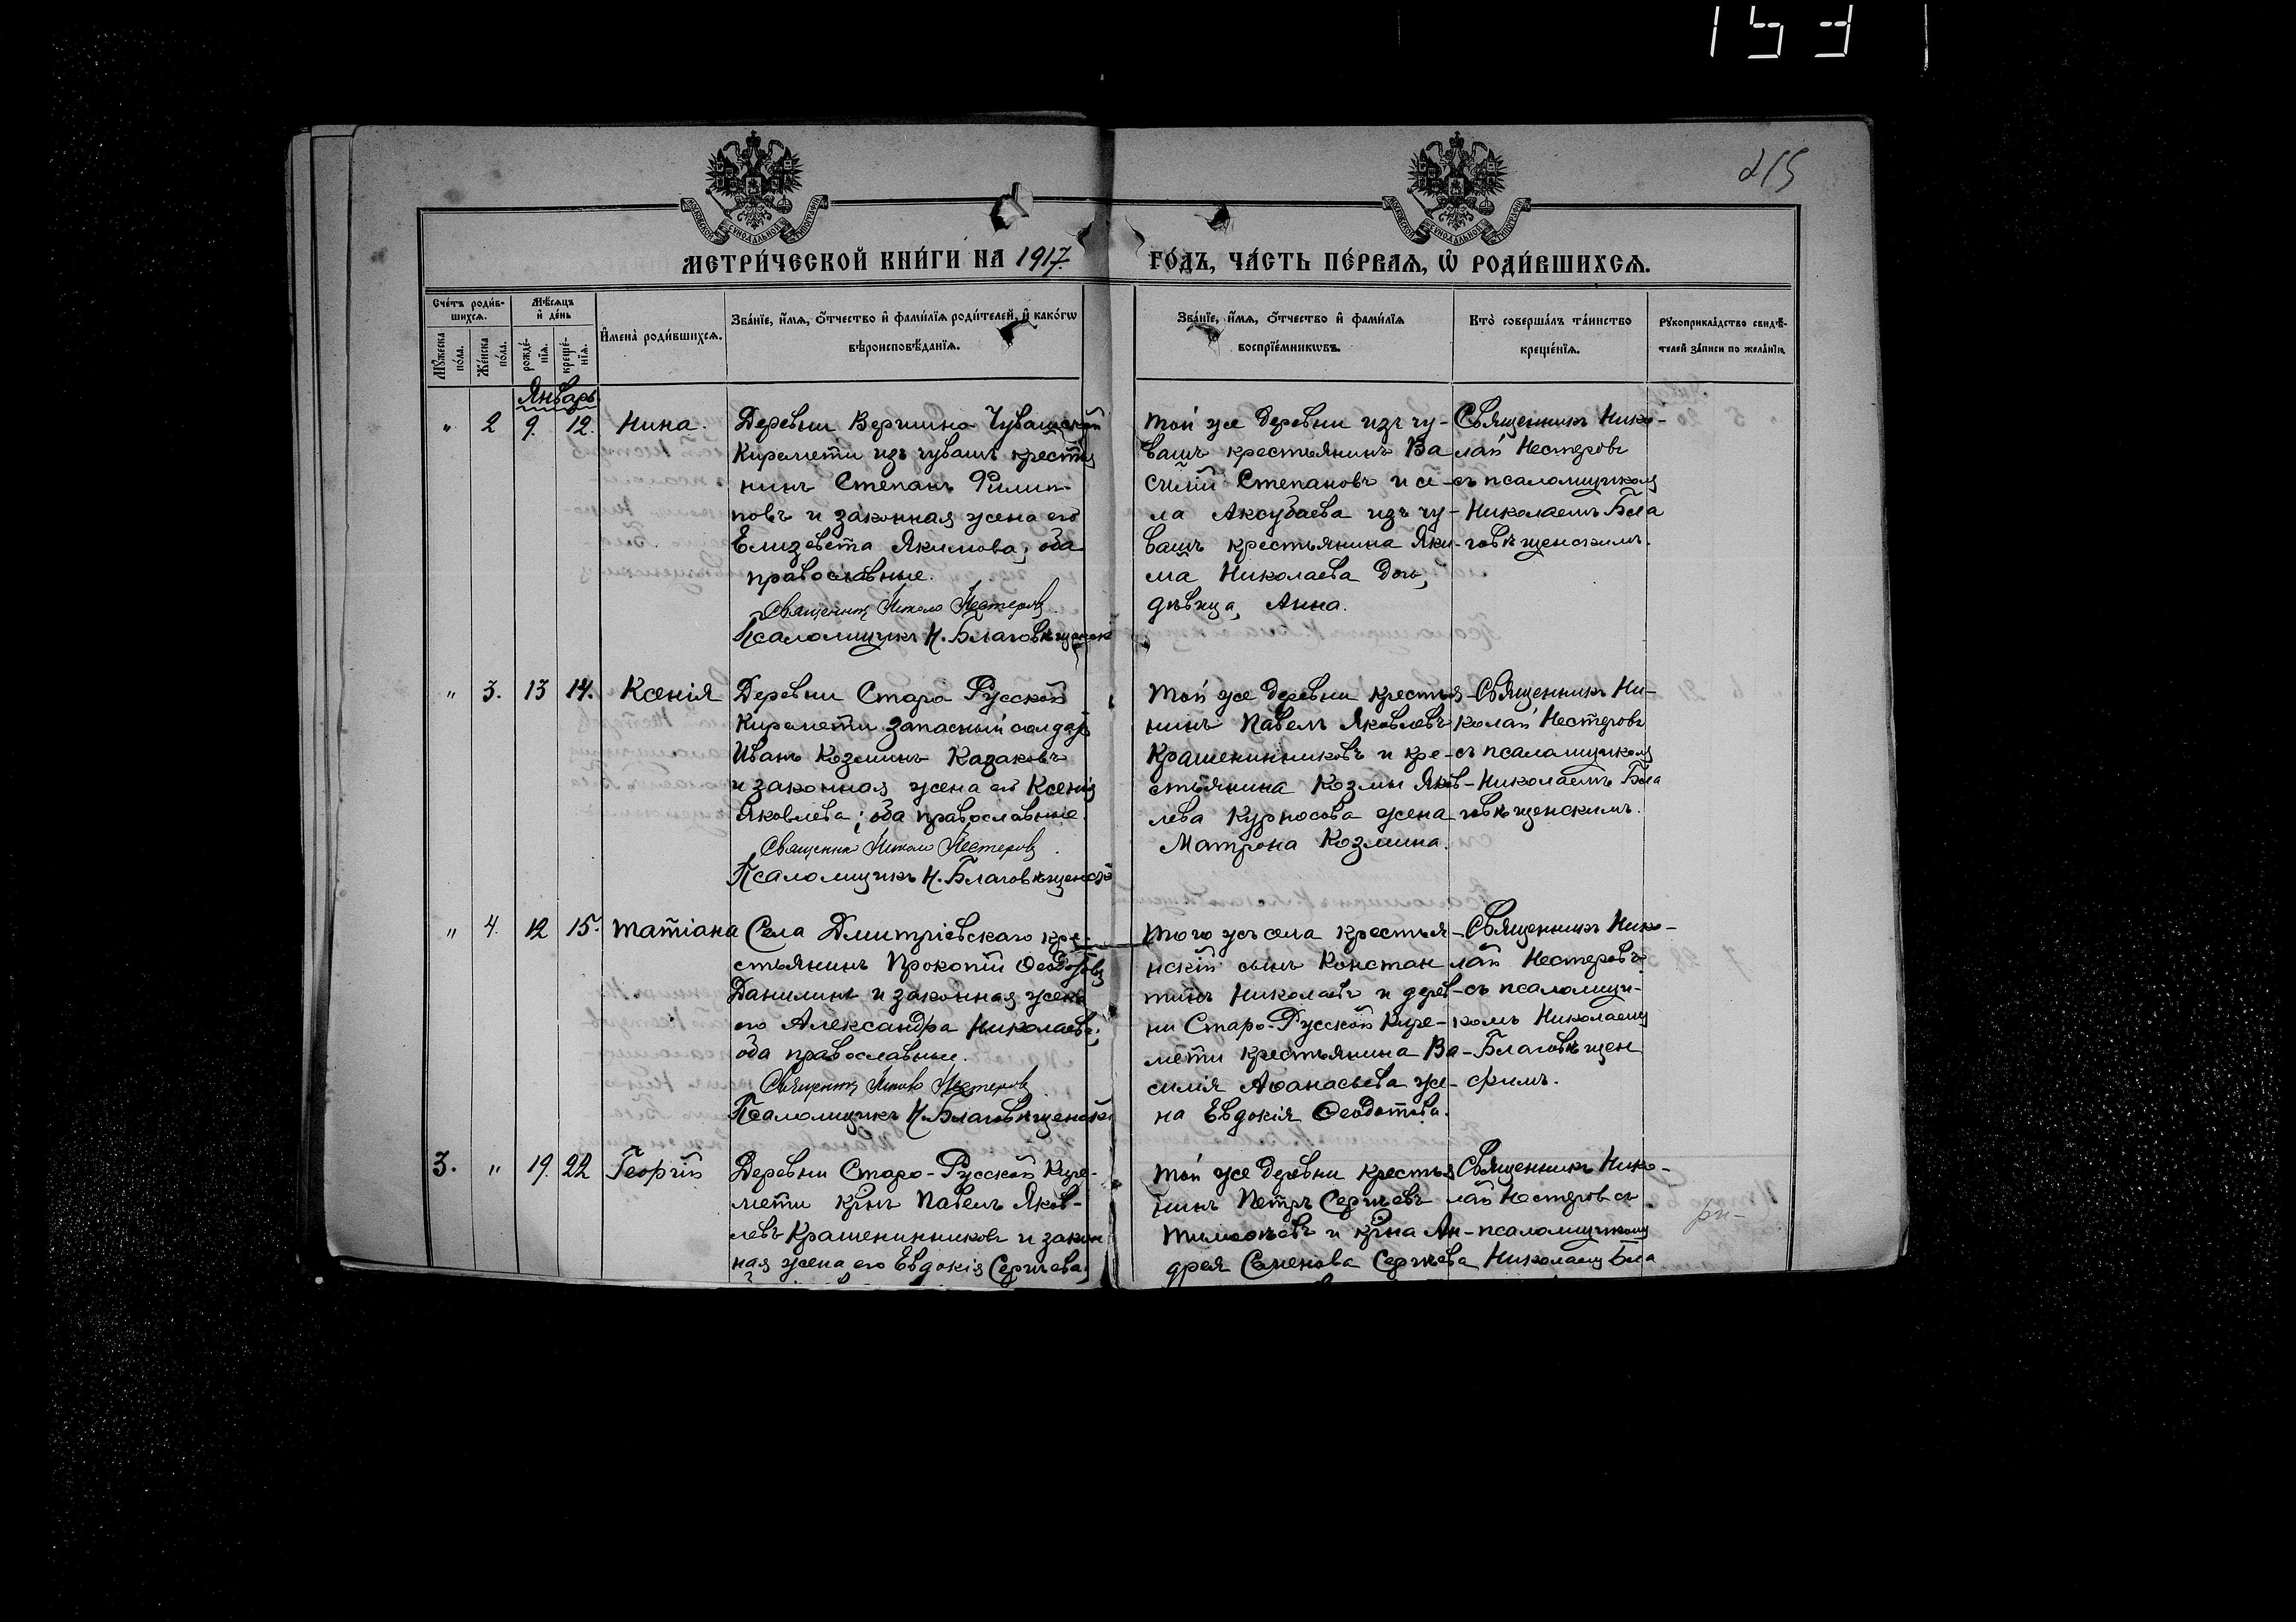 1531
215
МОСКОВСКОЙ СѴНОДАЛЬНОЙ ТИПОГРАФІИ
МОСКОВСКОЙ СѴНОДАЛЬНОЙ ТИПОГРАФІИ
МЕТРИ́ЧЕСКОЙ КНИ́ГИ НА 1917 ГО́ДЪ, ЧА́СТЬ ПЕ́РВАѦ, Ѡ҆ РОДИ́ВШИХСѦ.
Сче́тъ роди́в-
шихсѧ.
Мꙋ́жеска
по́ла.
Же́нска
по́ла.
Мѣ́сѧцъ
и҆ де́нь
рожде́-
нїѧ.
креще́-
нїѧ.
И҆мена̀ роди́вшихсѧ.
Зва́нїе, и҆́мѧ, ѻ҆́тчество и҆ фами́лїѧ роди́телей, и҆ како́гѡ
вѣроисповѣ́данїѧ.
Зва́нїе, и҆́мѧ, ѻ҆́тчество и҆ фами́лїѧ
воспрїе́мникѡвъ.
Кто̀ соверша́лъ та́инство
креще́нїѧ.
Рꙋкоприкла́дство свидѣ́-
телей за́писи по жела́нїю.
Январь
" 2 9. 12. Нина.
Деревни Вершино-Чувашской
Киремети изъ чувашъ крестья
нинъ Степанъ Филип-
повъ и законная жена его
Елизавета Якимова; оба
православные.
Священникъ Никола Нестеровъ.
Псаломщикъ Н. Благовѣщенск
той же деревни изъ чу-
вашъ крестьянинъ Ва
силій Степановъ и се-
ла Аксубаева изъ чу-
вашъ крестьянина Яки-
ма Николаева дочь,
дѣвица, Анна.
Священникъ Нико-
лай Нестеровъ
съ псаломщикомъ
Николаемъ Бла
говѣщенскимъ.
" 3. 13 14. Ксенія
Деревни Старо Русской
Киремети запасный солдатъ
Иванъ Козминъ Казаковъ
и законная жена его Ксенія
Яковлева; оба православные
Священник Никола Нестеровъ.
Псаломщикъ Н. Благовѣщенскій
той же деревни крестья
нинъ Павелъ Яковлевъ
Крашенинниковъ и кре-
стьянина Козмы Яков-
лева Курносова жена
Матрона Козмина.
Священникъ Ни-
колай Нестеровъ
съ псаломщикомъ
Николаемъ Бла
говѣщенскимъ.
" 4. 12 15. Татіана
Села Дмитріевскаго кре-
стьянинъ Прокопій Ѳеодотовъ
Данилинъ и законная жена
его Александра Николаева;
оба православные.
Священникъ Никола Нестеровъ
Псаломщикъ Н. Благовѣщенскій
того же села крестья-
нскій сынъ Констан
тинъ Николаевъ и дерев-
ни Старо-Русской Кире-
мети крестьянина Ва-
силія Аѳанасьева же-
на Евдокія Ѳеодотова.
Священникъ Нико-
лай Нестеровъ
съ псаломщи-
комъ Николаемъ
Благовѣщен
скимъ.
3. " 19. 22 Георгій
Деревни Старо-Русской Кире-
мети кр̃нъ Павелъ Яков-
левъ Крашенинниковъ и закон
ная жена его Евдокія Сергѣева
той же деревни крестья
нинъ Петръ Сергѣевъ
Тимоѳеевъ и кр̃на Ан-
дрея Семенова Сергѣева
Священникъ Нико-
лай Нестеровъ съ
псаломщикомъ
Николаемъ Бла